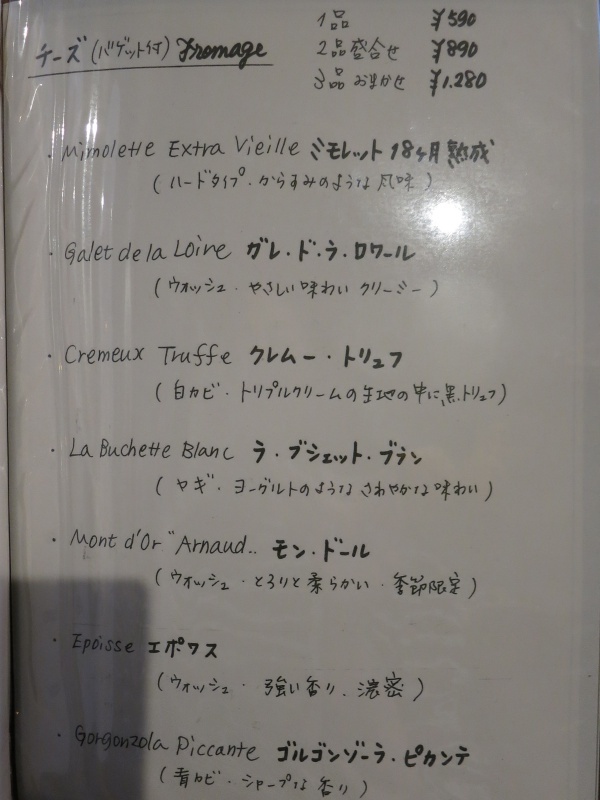 チーズ(バゲット付) Fromage
1品 ¥590
2品盛合せ ¥890
3品おまかせ ¥1.280
・Mimolette Extra Vieille ミモレット 18ヶ月熟成
(ハードタイプ・からすみのような風味)
・Galet de la Loire ガレ・ド・ラ・ロワール
(ウォッシュ・やさしい味わい クリーミー)
・Cremeux Truffe クレムー・トリュフ
(白カビ・トリプルクリームの生地の中に黒トリュフ)
・La Buchette Blanc ラ・ブシェット・ブラン
(ヤギ・ヨーグルトのような さわやかな味わい)
・Mont d'Or "Arnaud" モン・ドール
(ウォッシュ・とろりと柔らかい・季節限定)
・Epoisse エポワス
(ウォッシュ・強い香り、濃密)
・Gorgonzola Piccante ゴルゴンゾーラ・ピカンテ
(青カビ・シャープな香り)